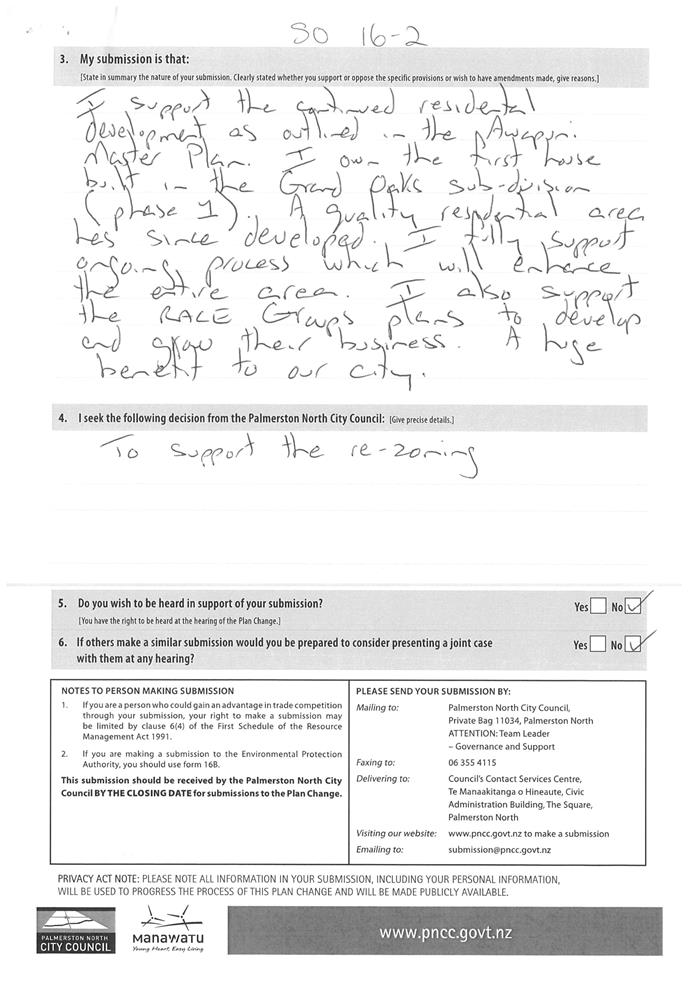 SO 16-2
3. My submission is that:
[State in summary the nature of your submission. Clearly stated whether you support or oppose the specific provisions or wish to have amendments made, give reasons.]
I support the continued residental
development as outlined in the Awapuni
Master Plan. I own the first house
built in the Grand Oaks sub-division
(phase 1). A quality residential area
has since developed. I fully support
ongoing process which will enhance
the entire area. I also support
the RACE Groups plans to develop
and grow their business. A huge
benefit to our city.
4. I seek the following decision from the Palmerston North City Council: [Give precise details.]
To support the re-zoning
5. Do you wish to be heard in support of your submission? Yes No
[You have the right to be heard at the hearing of the Plan Change.]
6. If others make a similar submission would you be prepared to consider presenting a joint case Yes No
with them at any hearing?
NOTES TO PERSON MAKING SUBMISSION
1. If you are a person who could gain an advantage in trade competition
through your submission, your right to make a submission may
be limited by clause 6(4) of the First Schedule of the Resource
Management Act 1991.
2. If you are making a submission to the Environmental Protection
Authority, you should use form 16B.
This submission should be received by the Palmerston North City
Council BY THE CLOSING DATE for submissions to the Plan Change.
PLEASE SEND YOUR SUBMISSION BY:
Mailing to: Palmerston North City Council,
Private Bag 11034, Palmerston North
ATTENTION: Team Leader
– Governance and Support
Faxing to: 06 355 4115
Delivering to: Council's Contact Services Centre,
Te Manaakitanga o Hineaute, Civic
Administration Building, The Square,
Palmerston North
Visiting our website: www.pncc.govt.nz to make a submission
Emailing to: submission@pncc.govt.nz
PRIVACY ACT NOTE: PLEASE NOTE ALL INFORMATION IN YOUR SUBMISSION, INCLUDING YOUR PERSONAL INFORMATION,
WILL BE USED TO PROGRESS THE PROCESS OF THIS PLAN CHANGE AND WILL BE MADE PUBLICLY AVAILABLE.
PALMERSTON NORTH
CITY COUNCIL
MANAWATU
Young Heart, Easy Living
www.pncc.govt.nz